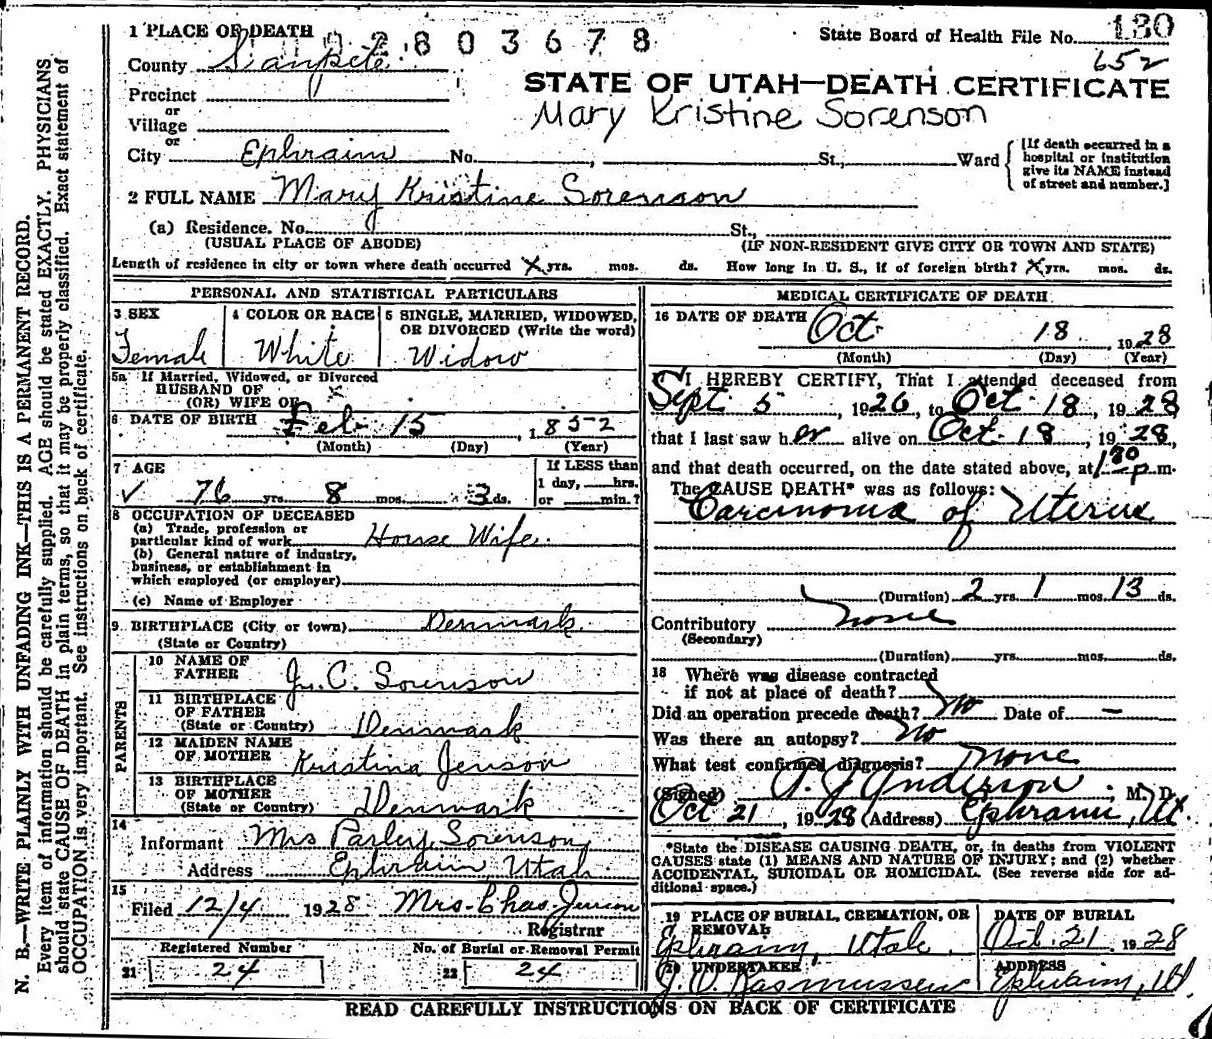 1 PLACE OF DEATH
2 8 0 3 6 7 8
State Board of Health File No. 130
652
County Sanpete
STATE OF UTAH—DEATH CERTIFICATE
Precinct
or
Village
Mary Kristine Sorenson
or
City Ephraim No. , St., Ward
[If death occurred in a hospital or institution give its NAME instead of street and number.]
2 FULL NAME Mary Kristine Sorenson
(a) Residence. No. St.,
(USUAL PLACE OF ABODE) (IF NON-RESIDENT GIVE CITY OR TOWN AND STATE)
Length of residence in city or town where death occurred X yrs. mos. ds. How long in U. S., if of foreign birth? X yrs. mos. ds.
PERSONAL AND STATISTICAL PARTICULARS
3 SEX
Female
4 COLOR OR RACE
White
5 SINGLE, MARRIED, WIDOWED, OR DIVORCED (Write the word)
Widow
5a If Married, Widowed, or Divorced
HUSBAND OF
(OR) WIFE OF
6 DATE OF BIRTH Feb 15, 1852
(Month) (Day) (Year)
7 AGE
76 yrs. 8 mos. 3 ds.
If LESS than
1 day, hrs.
or min.?
8 OCCUPATION OF DECEASED
(a) Trade, profession or
particular kind of work House Wife.
(b) General nature of industry,
business, or establishment in
which employed (or employer)
(c) Name of Employer
9 BIRTHPLACE (City or town) Denmark.
(State or Country)
PARENTS
10 NAME OF
FATHER J. C. Sorenson
11 BIRTHPLACE
OF FATHER
(State or Country) Denmark
12 MAIDEN NAME
OF MOTHER Kristina Jenson
13 BIRTHPLACE
OF MOTHER
(State or Country) Denmark
14
Informant Mrs Parley Sorenson,
Address Ephraim, Utah
15
Filed 12/4 1928 Mrs. Chas. Jenson
Registrar
Registered Number No. of Burial or Removal Permit
21 24 22 24
MEDICAL CERTIFICATE OF DEATH
16 DATE OF DEATH Oct. 18, 1928
(Month) (Day) (Year)
I HEREBY CERTIFY, That I attended deceased from
Sept. 5, 1926, to Oct. 18, 1928
that I last saw her alive on Oct. 18, 1928,
and that death occurred, on the date stated above, at 1 30 p m.
The CAUSE DEATH* was as follows:
Carcinoma of Uterus
(Duration) 2 yrs. 1 mos. 13 ds.
Contributory none
(Secondary)
(Duration) yrs. mos. ds.
18 Where was disease contracted
if not at place of death?
Did an operation precede death? No Date of —
Was there an autopsy? No
What test confirmed diagnosis? none
(Signed) A. J. Anderson, M. D.
Oct 21, 1928 (Address) Ephraim, Ut.
*State the DISEASE CAUSING DEATH, or, in deaths from VIOLENT
CAUSES state (1) MEANS AND NATURE OF INJURY; and (2) whether
ACCIDENTAL, SUICIDAL OR HOMICIDAL. (See reverse side for ad-
ditional space.)
19 PLACE OF BURIAL, CREMATION, OR
REMOVAL
Ephraim, Utah.
DATE OF BURIAL
Oct. 21 1928
20 UNDERTAKER
Rasmussen
ADDRESS
Ephraim, Ut
READ CAREFULLY INSTRUCTIONS ON BACK OF CERTIFICATE
N. B.—WRITE PLAINLY WITH UNFADING INK—THIS IS A PERMANENT RECORD.
Every item of information should be carefully supplied. AGE should be stated EXACTLY. PHYSICIANS
should state CAUSE OF DEATH in plain terms, so that it may be properly classified. Exact statement of
OCCUPATION is very important. See instructions on back of certificate.